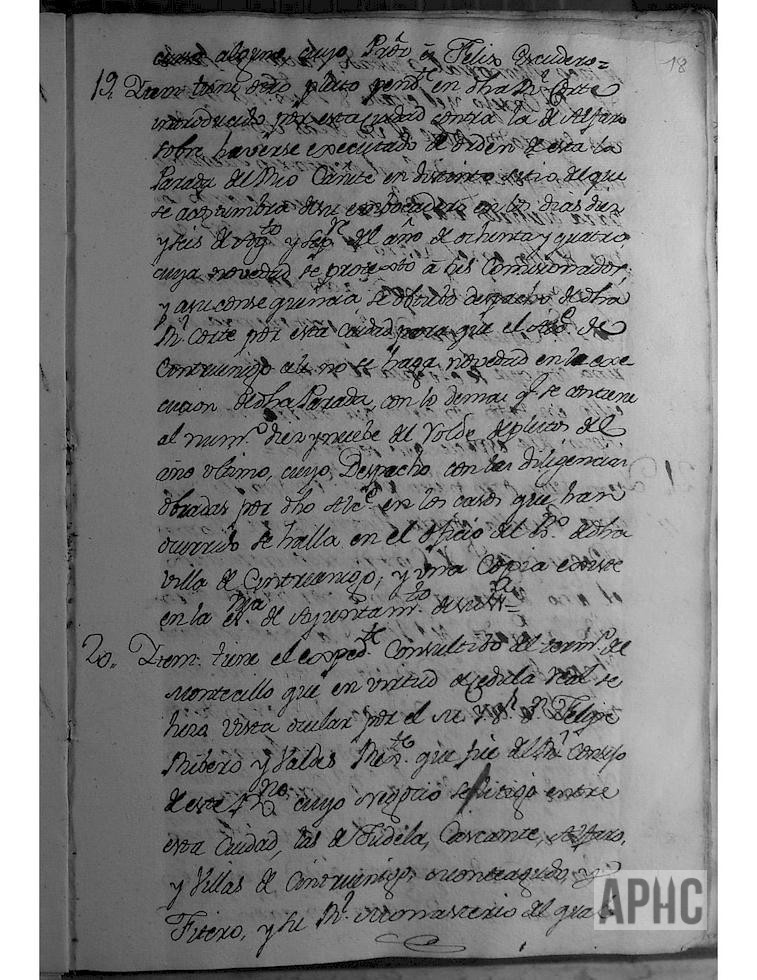 18
alguna, cuyo Prõr es Felix Escudero=
19. Ytem. tiene otro pleito pend.te en dha R.l Corte
introducido por esta ciudad contra la de Alfaro
sobre haverse executado de orden de esta la
Parada del Rio Cañete en distinto sitio del que
se acostumbra de su embocadero en los dias diez
y seis de Ag.to y sep.re del año de ochenta y quatro
cuya novedad se protextó à sus Comisionados,
y a su consequencia se obtubo despacho de dha
R.l Corte por esta Ciudad para que el Alc.e de
Cintruenigo cele no se haga novedad en la exe
cucion de dha Parada, con lo demas q.e se contiene
al num.o diez y nuebe del Volde. de pleitos del
año vltimo, cuyo Despacho con las diligencias
obradas por dho Alc.e en los casos que han
ocurrido se halla en el oficio del de dha
Villa de Cintruenigo, y vna Copia existe
en la de Ayuntam.to
20. Ytem. tiene el exped.te Consultibo del term.o de
Montecillo que en virtud de zedula Real se
hizo vista ocular por el D.n Felipe
Ribero y Valdes que fue del R.l Consejo
de este R.no cuyo negocio se litigó entre
esta Ciudad, las de Tudela, Cascante, Alfaro,
y Villas de Cintruenigo, Monteagudo, y
Fitero, y su R.l Monasterio del qual
APHC